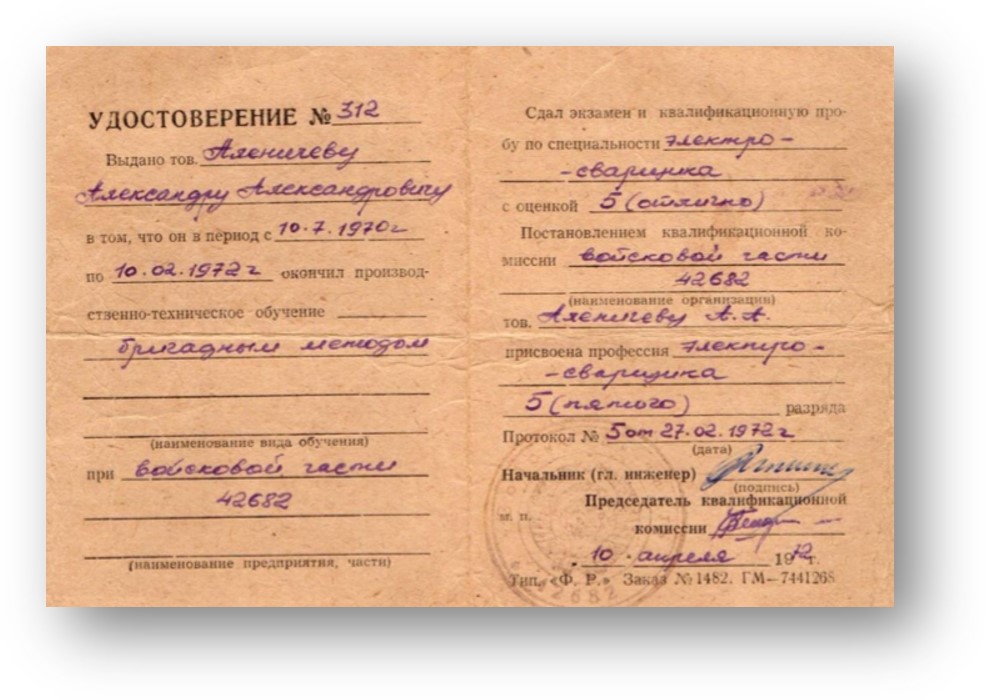 УДОСТОВЕРЕНИЕ № 312
Выдано тов. Аленичеву
Александру Александровичу
в том, что он в период с 10.7.1970г
по 10.02.1972г окончил производ-
ственно-техническое обучение
бригадным методом
(наименование вида обучения)
при войсковой части
42682
(наименование предприятия, части)
Сдал экзамен и квалификационную про-
бу по специальности электро-
-сварщика
с оценкой 5 (отлично)
Постановлением квалификационной ко-
миссии войсковой части
42682
(наименование организации)
тов. Аленичеву А.А.
присвоена профессия электро-
-сварщика
5 (пятого) разряда
Протокол № 5 от 27.02.1972г
(дата)
Начальник (гл. инженер)
(подпись)
Председатель квалификационной
м. п.
комиссии
10 апреля 1972 г.
Тип. «Ф. Р.» Заказ № 1482. ГМ—7441268
42682